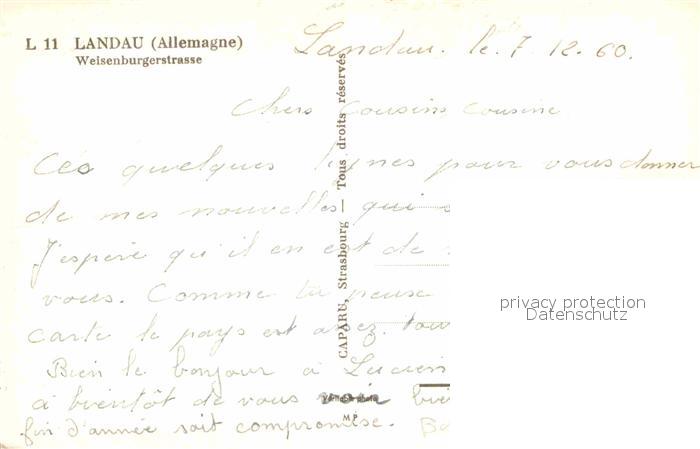 L 11 LANDAU (Allemagne)
Weisenburgerstrasse
Landau. le 7. 12. 60.
Chers Cousins Cousine
Ces quelques lignes pour vous donner
de mes nouvelles qui
J'espère qu'il en est de
vous. Comme tu peux
carte le pays est assez
Bien le bonjour à Lucien
à bientôt de vous voir
fin d'année soit compromise.
CAPARU, Strasbourg — Tous droits réservés
M P
privacy protection
Datenschutz